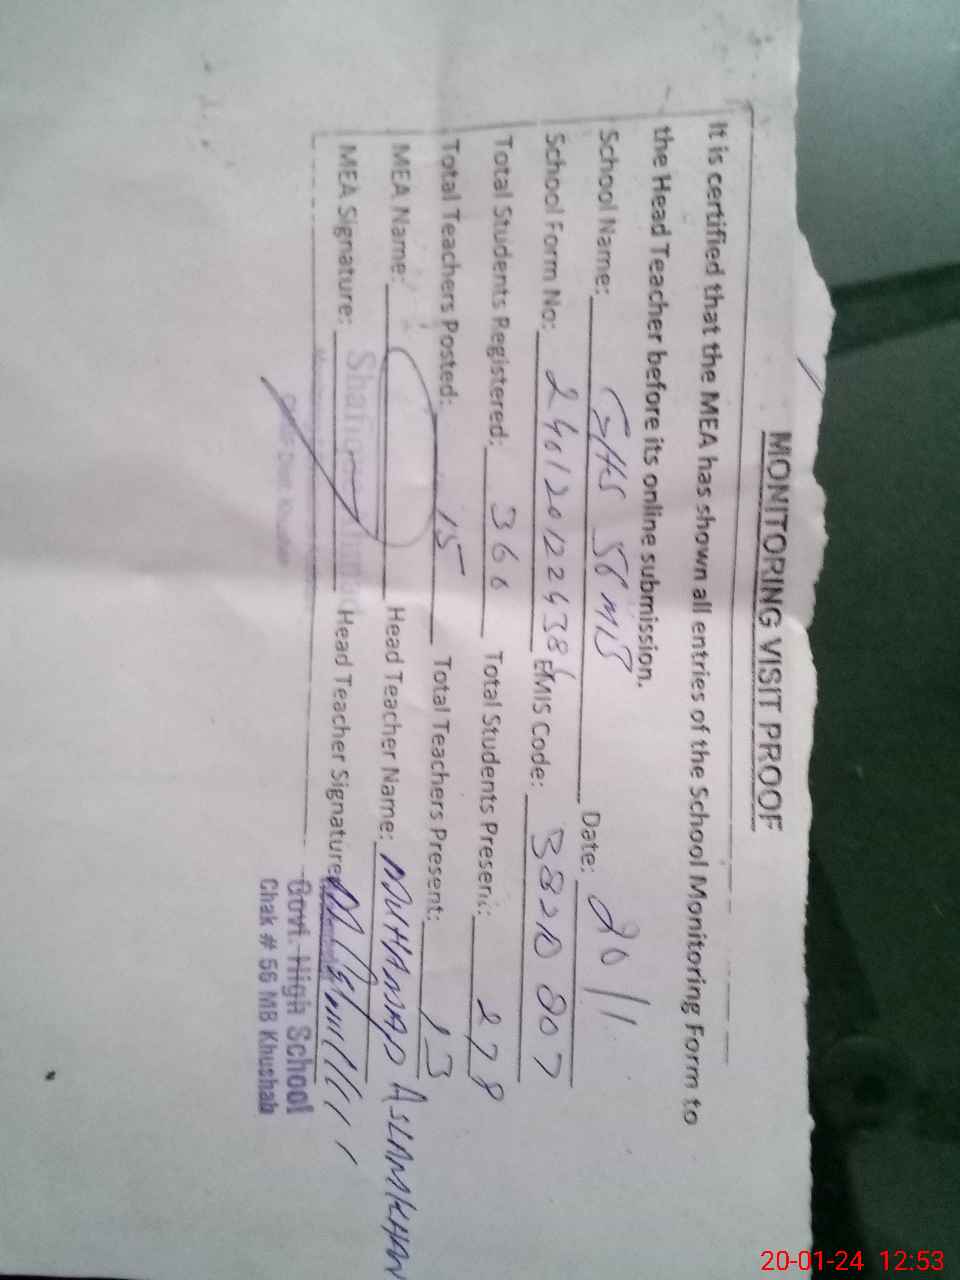 MONITORING VISIT PROOF
It is certified that the MEA has shown all entries of the School Monitoring Form to
the Head Teacher before its online submission.
School Name: GHS 56 MB Date: 20/1
School Form No: EMIS Code: 38210007
Total Students Registered: 366 Total Students Present: 278
Total Teachers Posted: 15 Total Teachers Present: 13
MEA Name: Head Teacher Name: MUHAMMAD ASLAM KHAN
MEA Signature: Head Teacher Signature:
Govt. High School
Chak # 56 MB Khushab
20-01-24 12:53